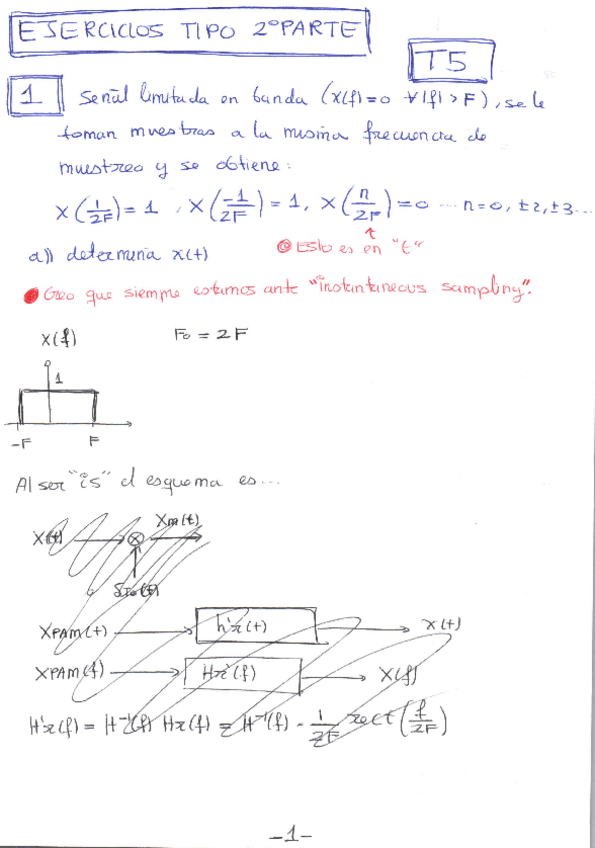 EJERCICIOS TIPO 2º PARTE
T5
1 Señal limitada en banda (X(f)=0 ∀|f|>F), se le
toman muestras a la misma frecuencia de
muestreo y se obtiene:
X(1/2F)=1 , X(-1/2F)=1, X(n/2F)=0 ... n=0, ±2, ±3...
a)) determina x(t)
Esto es en "t"
Creo que siempre estamos ante "instantaneous sampling".
X(f)
Fo = 2F
1
-F F
Al ser "is" el esquema es...
X(t) Xm(t)
δTo(t)
XPAM(t) h'r(t) x(t)
XPAM(f) Hr'(f) X(f)
H'r(f) = H⁻¹(f) Hr(f) = H⁻¹(f) - 1/2F rect(f/2F)
-1-